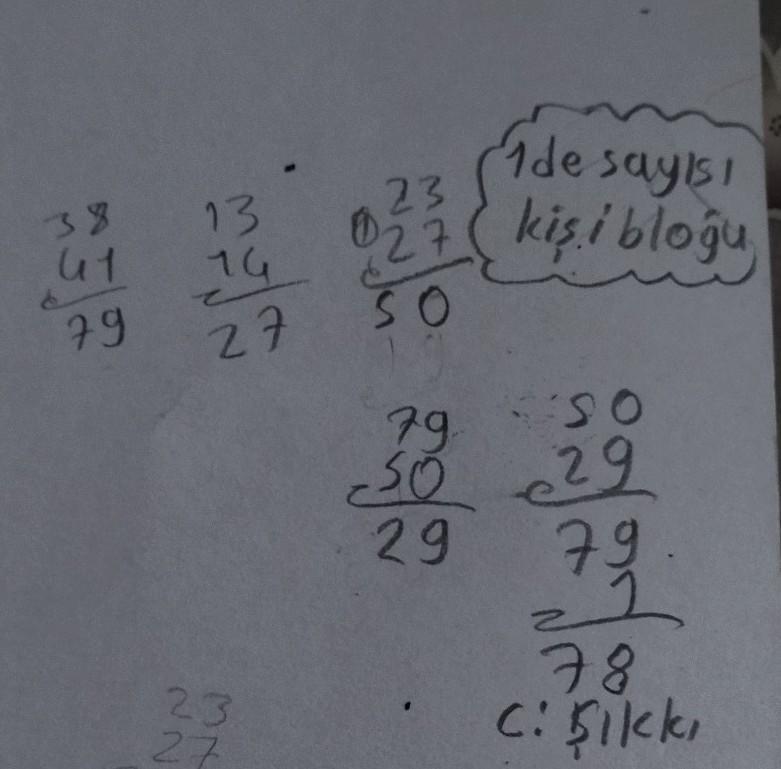 38
41
79
13
14
27
23
① 27
50
1 de sayısı
kişi bloğu
79
50
29
50
29
79
1
78
C: Şıkkı
23
27